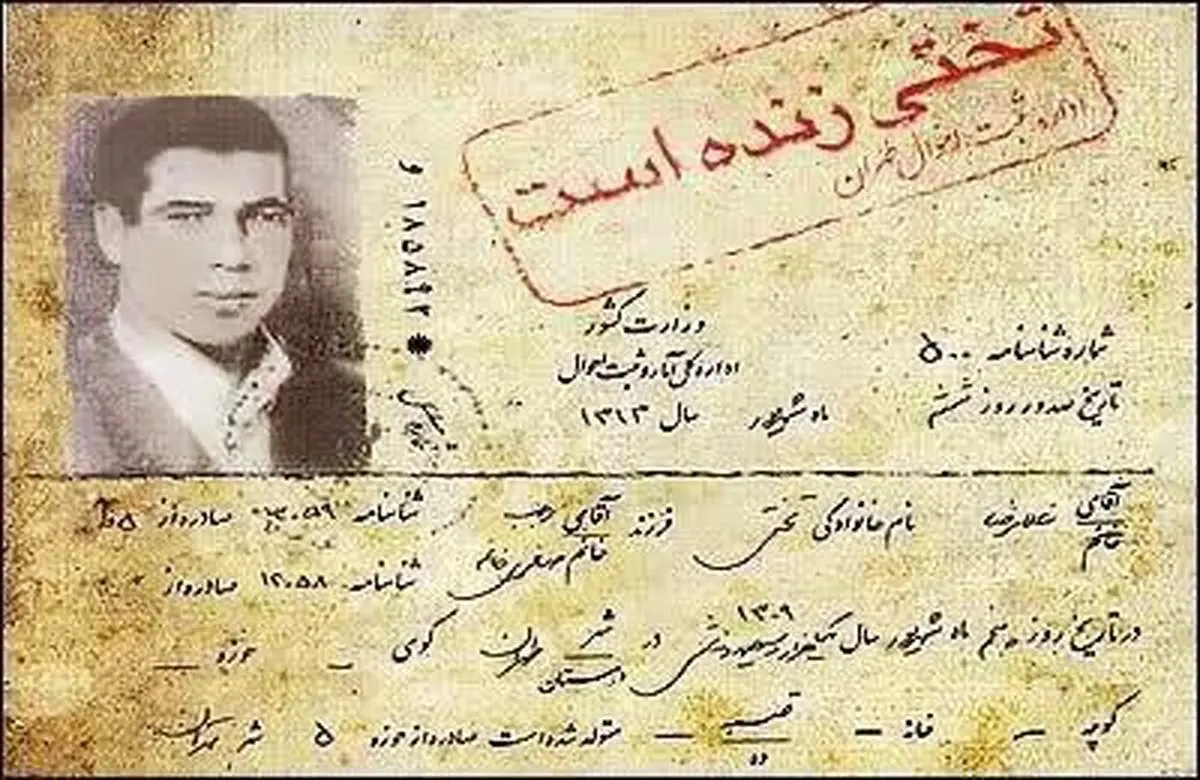 تختی زنده است
اداره ثبت احوال طهران
۱۸۵۸۴۲ و
وزارت کشور
اداره کل آمار و ثبت احوال
شماره شناسنامه ۵۰۰
تاریخ صدور روز ششم ماه شهریور سال ۱۳۱۳
آقای خانم غلامرضا نام خانوادگی تختی فرزند آقای رجب شناسنامه ۳۰۵۹ صادره از ۵
خانم شناسنامه ۱۲۰۵۸ صادره از
در تاریخ روز پنجم ماه شهریور سال یکهزار و سیصد و نه ۱۳۰۹ در شهر شهرستان طهران کوی – حوزه –
کوچه – خانه – قصبه ده – متولد شده است صادره از حوزه ۵ شهر تهران